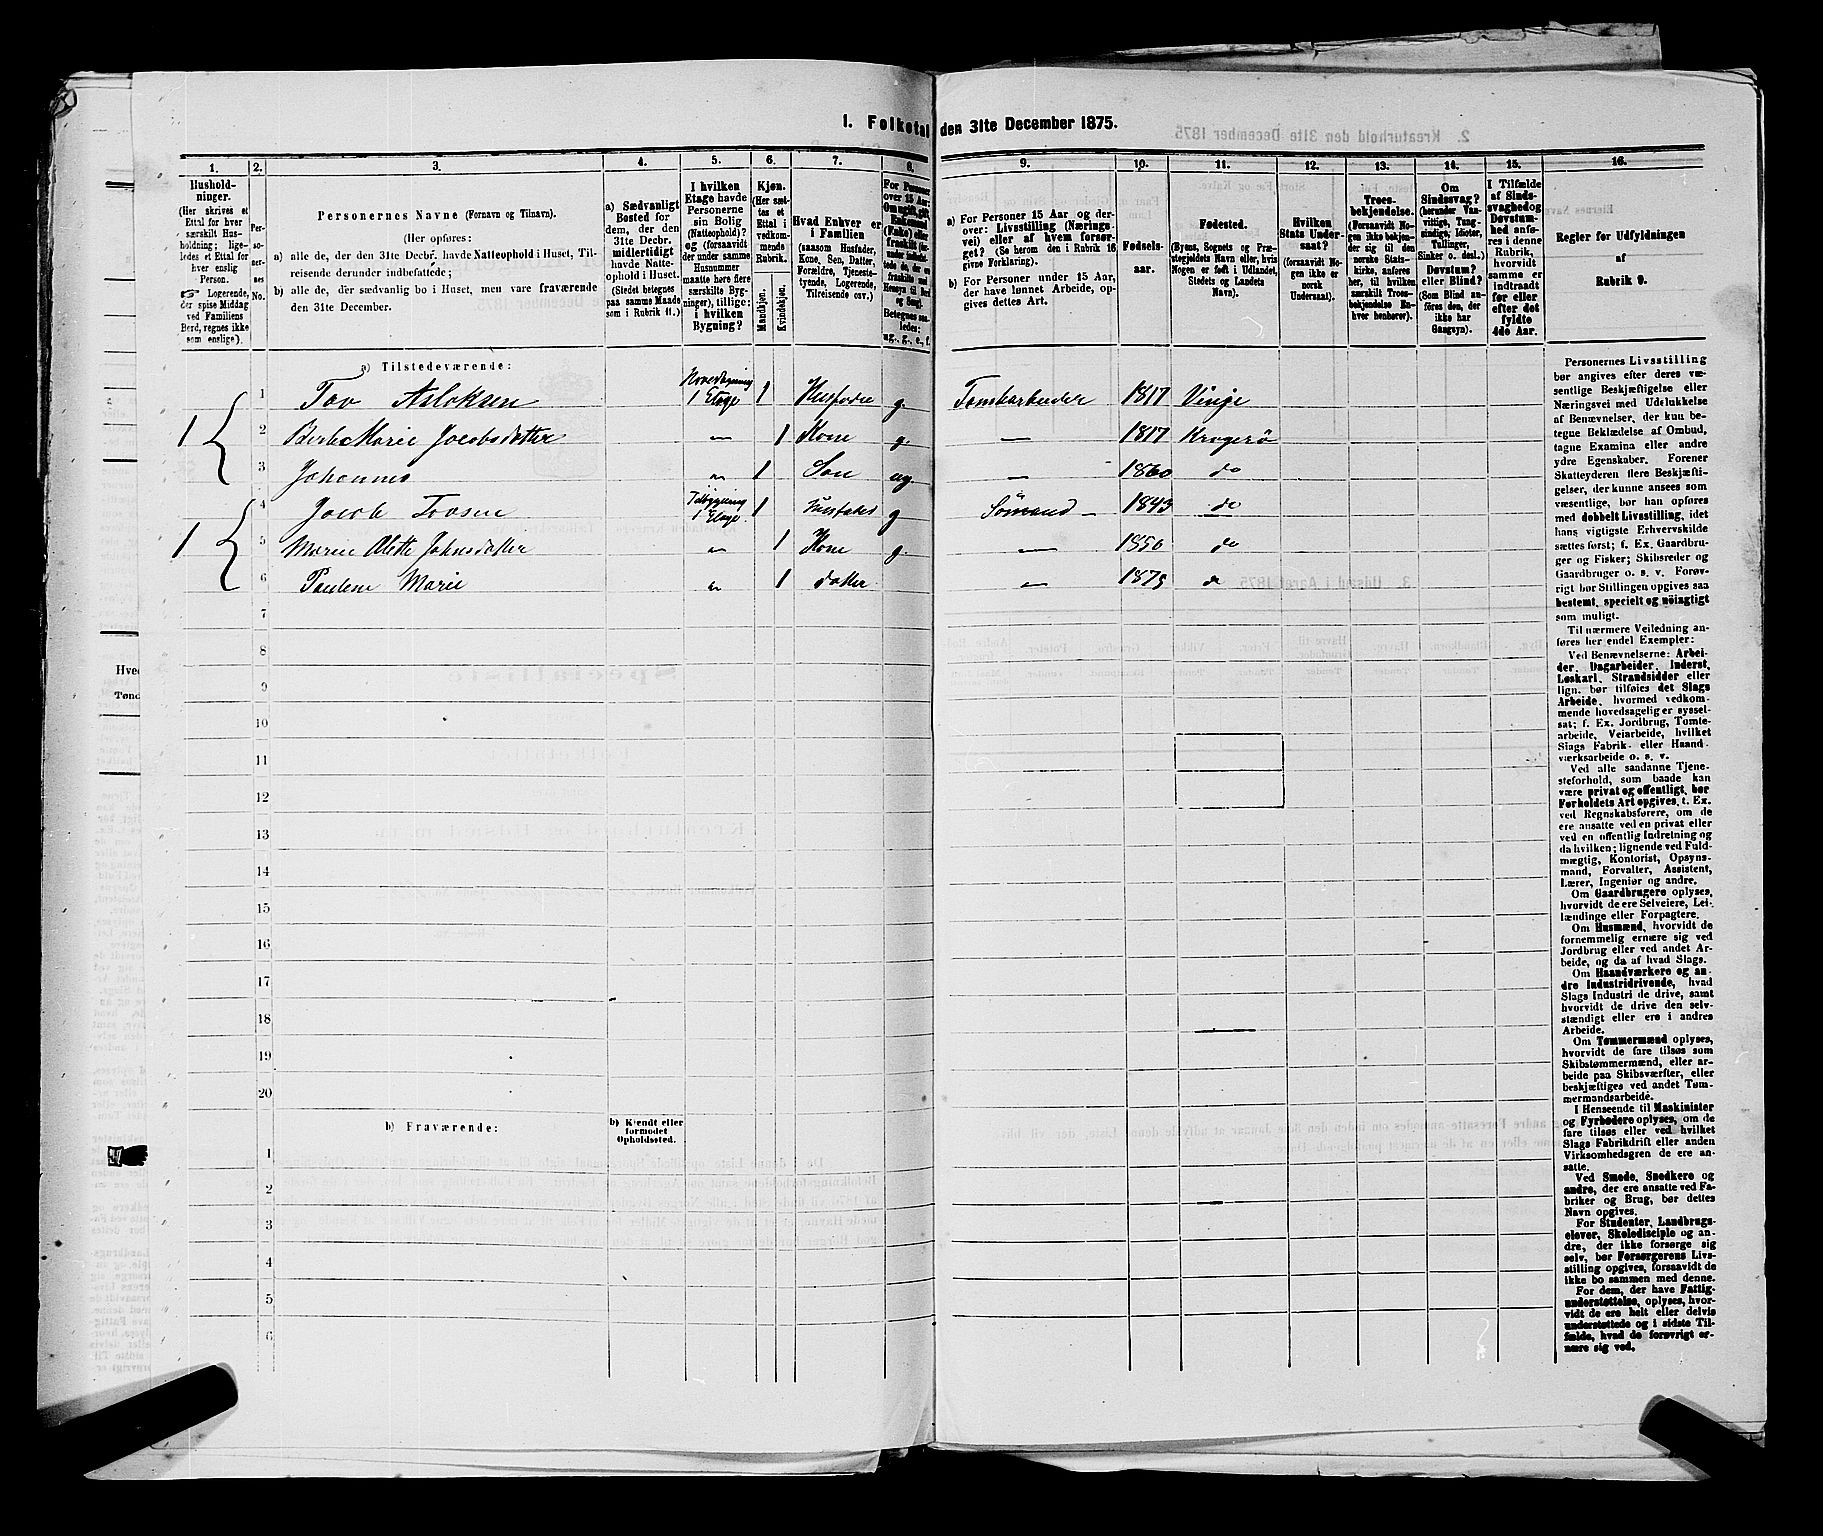 1. Folketal den 31te December 1875.
1. 2. 3. 4. 5. 6. 7. 8. 9. 10. 11. 12. 13. 14. 15. 16.
Husholdninger.
(Her skrives et
Ettal for hver
særskilt Husholdning;
ligeledes et Ettal for
hver enslig
Person.
☞ Logerende,
der spise Middag
ved Familiens
Bord, regnes ikke
som enslige).
Personernes No.
Personernes Navne (Fornavn og Tilnavn).
(Her opføres:
a) alle de, der den 31te Decbr. havde Natteophold i Huset, Tilreisende derunder indbefattede;
b) alle de, der sædvanlig bo i Huset, men vare fraværende
den 31te December.
a) Sædvanligt
Bosted for
dem, der den
31te Decbr.
midlertidigt
havde Natteophold i Huset.
(Stedet betegnes
paa samme Maade
som i Rubrik 11.)
I hvilken
Etage havde
Personerne
sin Bolig
(Natteophold)?
og (forsaavidt
der under samme
Husnummer
maatte høre flere
særskilte Bygninger), tillige:
i hvilken
Bygning?
Kjøn.
(Her sættes et
Ettal i
vedkommende
Rubrik.
Mandkjøn.
Kvindekjøn.
Hvad Enhver er
i Familien
(saasom Husfader,
Kone, Søn, Datter,
Forældre, Tjenestetyende, Logerende,
Tilreisende osv.)
Betegnes saaledes:
ug., g., e., f.
a) For Personer 15 Aar og derover: Livsstilling (Næringsvei) eller af hvem forsørget? (Se herom den i Rubrik 16
givne Forklaring.)
b) For Personer under 15 Aar,
der have lønnet Arbeide, opgives dettes Art.
Fødselsaar.
Fødested.
(Byens, Sognets og Præstegjeldets Navn eller, hvis
Nogen er født i Udlandet,
Stedets og Landets
Navn).
Hvilken
Stats Undersaat?
(forsaavidt Nogen ikke er
norsk
Undersaat).
Troesbekjendelse.
(Forsaavidt Nogen ikke bekjender sig til den
norske Statskirke, anføres
her, til hvilken
særskilt Troesbekjendelse Enhver henhører).
Om
Sindssvag?
(herunder Vanvittige, Tungsindige, Idioter,
Tullinger,
Sinker o. desl.)
Døvstum?
eller Blind?
(Som Blind anføres den, der
ikke har
Gangsyn).
I Tilfælde
af Sindssvaghed og
Døvstumhed anføres i denne
Rubrik,
hvorvidt
samme er
indtraadt
før eller
efter det
fyldte
4de Aar.
Regler for Udfyldningen
af
Rubrik 9.
a) Tilstedeværende:
1 1 Tov Asloksen Hovedbygning 1 Etage 1 Husfader g. Tomtearbeider 1817 Vinje
2 Berte Marie Jacobsdatter „ 1 Kone g. „ 1817 Kragerø
3 Johannes „ 1 Søn ug. „ 1860 do
1 4 Jacob Tovsen 1 Etage 1 Husfader g Sømand 1843 do
5 Maren Alette Johnsdatter „ 1 Kone g. „ 1850 do
6 Pauline Marie „ 1 datter „ 1875 do
7
8
9
10
11
12
13
14
15
16
17
18
19
20
b) Fraværende:
b) Kjendt eller
formodet
Opholdssted.
1
2
3
4
5
6
Personernes Livsstilling
bør angives efter deres væsentlige Beskjæftigelse eller
Næringsvei med Udelukkelse
af Benævnelser, der kun betegne Beklædelse af Ombud,
tagne Examina eller andre
ydre Egenskaber. Forener
Skatteyderen flere Beskjæftigelser, der kunne ansees som
væsentlige, bør han opføres
med dobbelt Livsstilling, idet
hans vigtigste Erhvervskilde
sættes først; f. Ex. Gaardbruger og Fisker; Skibsreder og
Gaardbruger o. s. v. Forøvrigt bør Stillingen opgives saa
bestemt, specielt og nöiagtigt
som muligt.
Til nærmere Veiledning anføres her endel Exempler:
Ved Benævnelserne: Arbeider, Dagarbeider, Inderst,
Løskarl, Strandsidder eller
lign. bør tilføies det Slags
Arbeide, hvormed vedkommende hovedsagelig er sysselsat; f. Ex. Jordbrug, Tomtearbeide, Veiarbeide, hvilket
Slags Fabrik- eller Haandværksarbeide o. s. v.
Ved alle saadanne Tjenesteforhold, som baade kan
være privat og offentligt, bør
Forholdets Art opgives, t. Ex.
ved Regnskabsførere, om de
ere ansatte ved en privat eller
ved en offentlig Indretning og
da hvilken; lignende ved Fuldmægtig, Kontorist, Opsynsmand, Forvalter, Assistent,
Lærer, Ingeniør og andre.
Om Gaardbrugere oplyses,
hvorvidt de ere Selveiere, Leilændinge eller Forpagtere.
Om Husmænd, hvorvidt de
fornemmelig ernære sig ved
Jordbrug eller ved andet Arbeide, og da af hvad Slags.
Om Haandværkere og andre Industridrivende, hvad
Slags Industri de drive, samt
hvorvidt de drive den selvstændigt eller ere i andres
Arbeide.
Om Tømmermænd oplyses,
hvorvidt de fare tilsøs som
Skibstømmermænd, eller arbeide paa Skibsværfter, eller
beskjæftiges ved andet Tømmermandsarbeide.
I Henseende til Maskinister
og Fyrbødere oplyses, om de
fare tilsøs eller ved hvilket
Slags Fabrikdrift eller anden
Virksomhedsgren de ere ansatte.
Ved Smede, Snedkere og
andre, der ere ansatte ved Fabriker og Brug, bør dettes
Navn opgives.
For Studenter, Landbrugselever, Skoledisciple og andre, der ikke forsørge sig
selv, bør Forsørgerens Livsstilling opgives, forsaavidt de
ikke bo sammen med denne.
For dem, der have Fattigunderstøttelse, oplyses, hvorvidt de ere helt eller delvis
understøttede og i sidste Tilfælde, hvad de forøvrigt ernære sig ved.